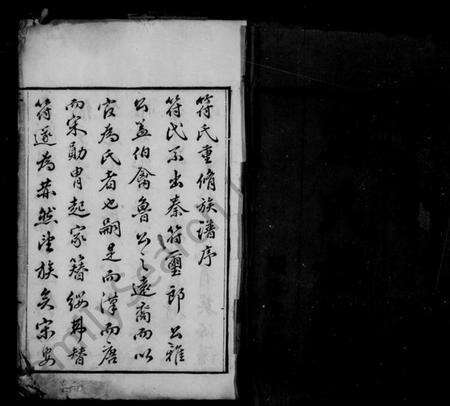 符氏重脩族譜序
符氏系出秦符璽郎公雅
公盖伯禽魯公之遠裔而以
官為氏者也嗣是而漢而唐
而宋勛胄起家簪纓弗替
符遂為蔚然望族矣宋安